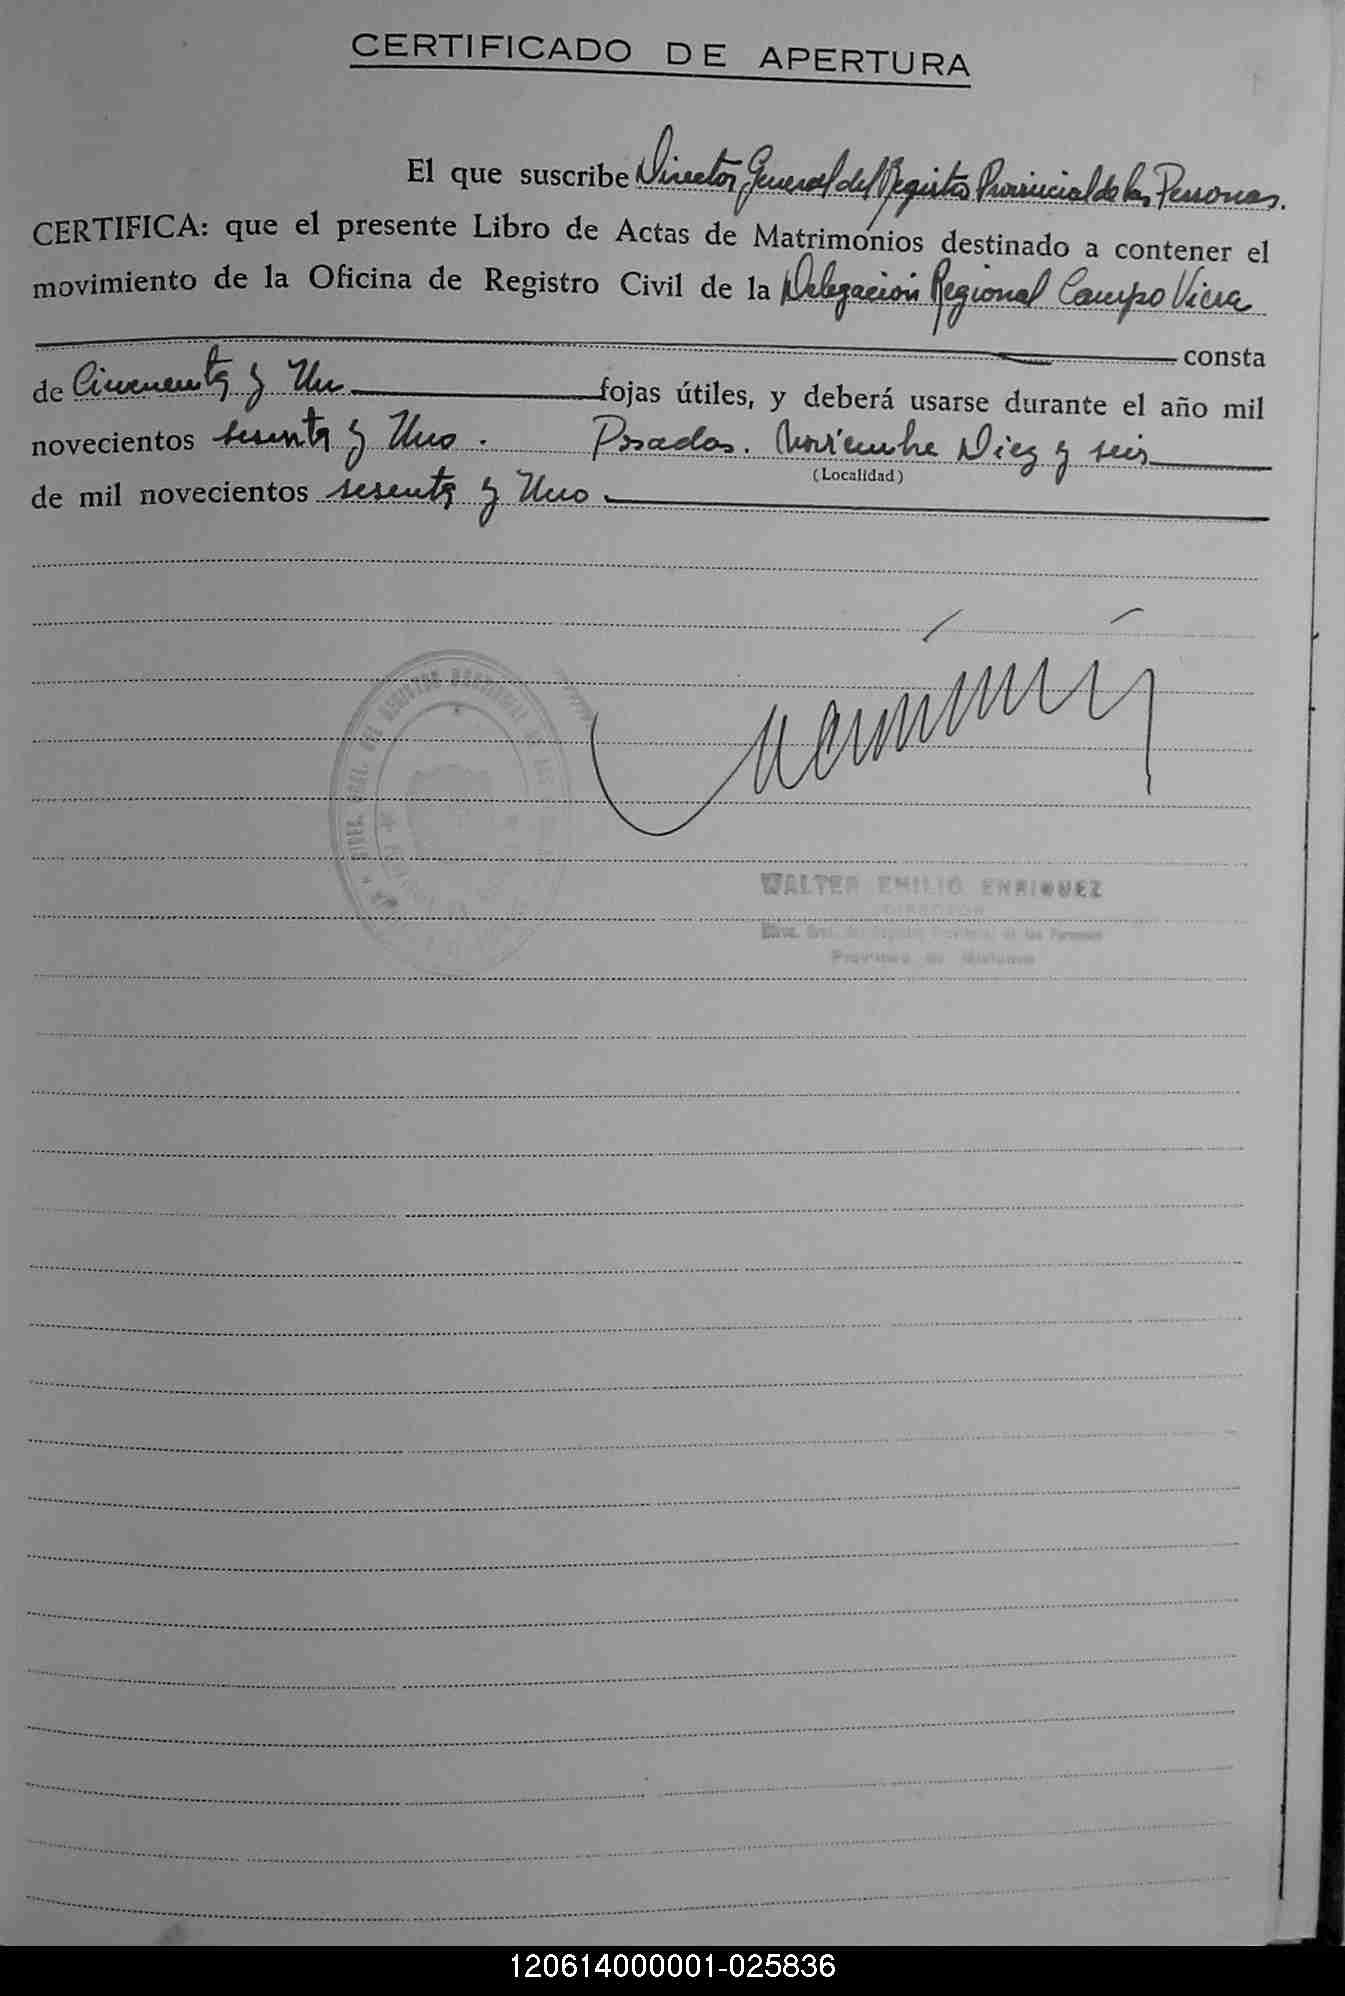 CERTIFICADO DE APERTURA
El que suscribe Director General del Registro Provincial de las Personas.
CERTIFICA: que el presente Libro de Actas de Matrimónios destinado a contener el
movimiento de la Oficina de Registro Civil de la Delegación Regional Campo Viera
consta
de Cincuenta y Un fojas útiles, y deberá usarse durante el año mil
novecientos sesenta y Uno. Posadas. Noviembre Diez y seis
(Localidad)
de mil novecientos sesenta y Uno
WALTER EMILIO ENRIQUEZ
DIRECTOR
Direc. Gral. del Registro Provincial de las Personas
Provincia de Misiones
120614000001-025836